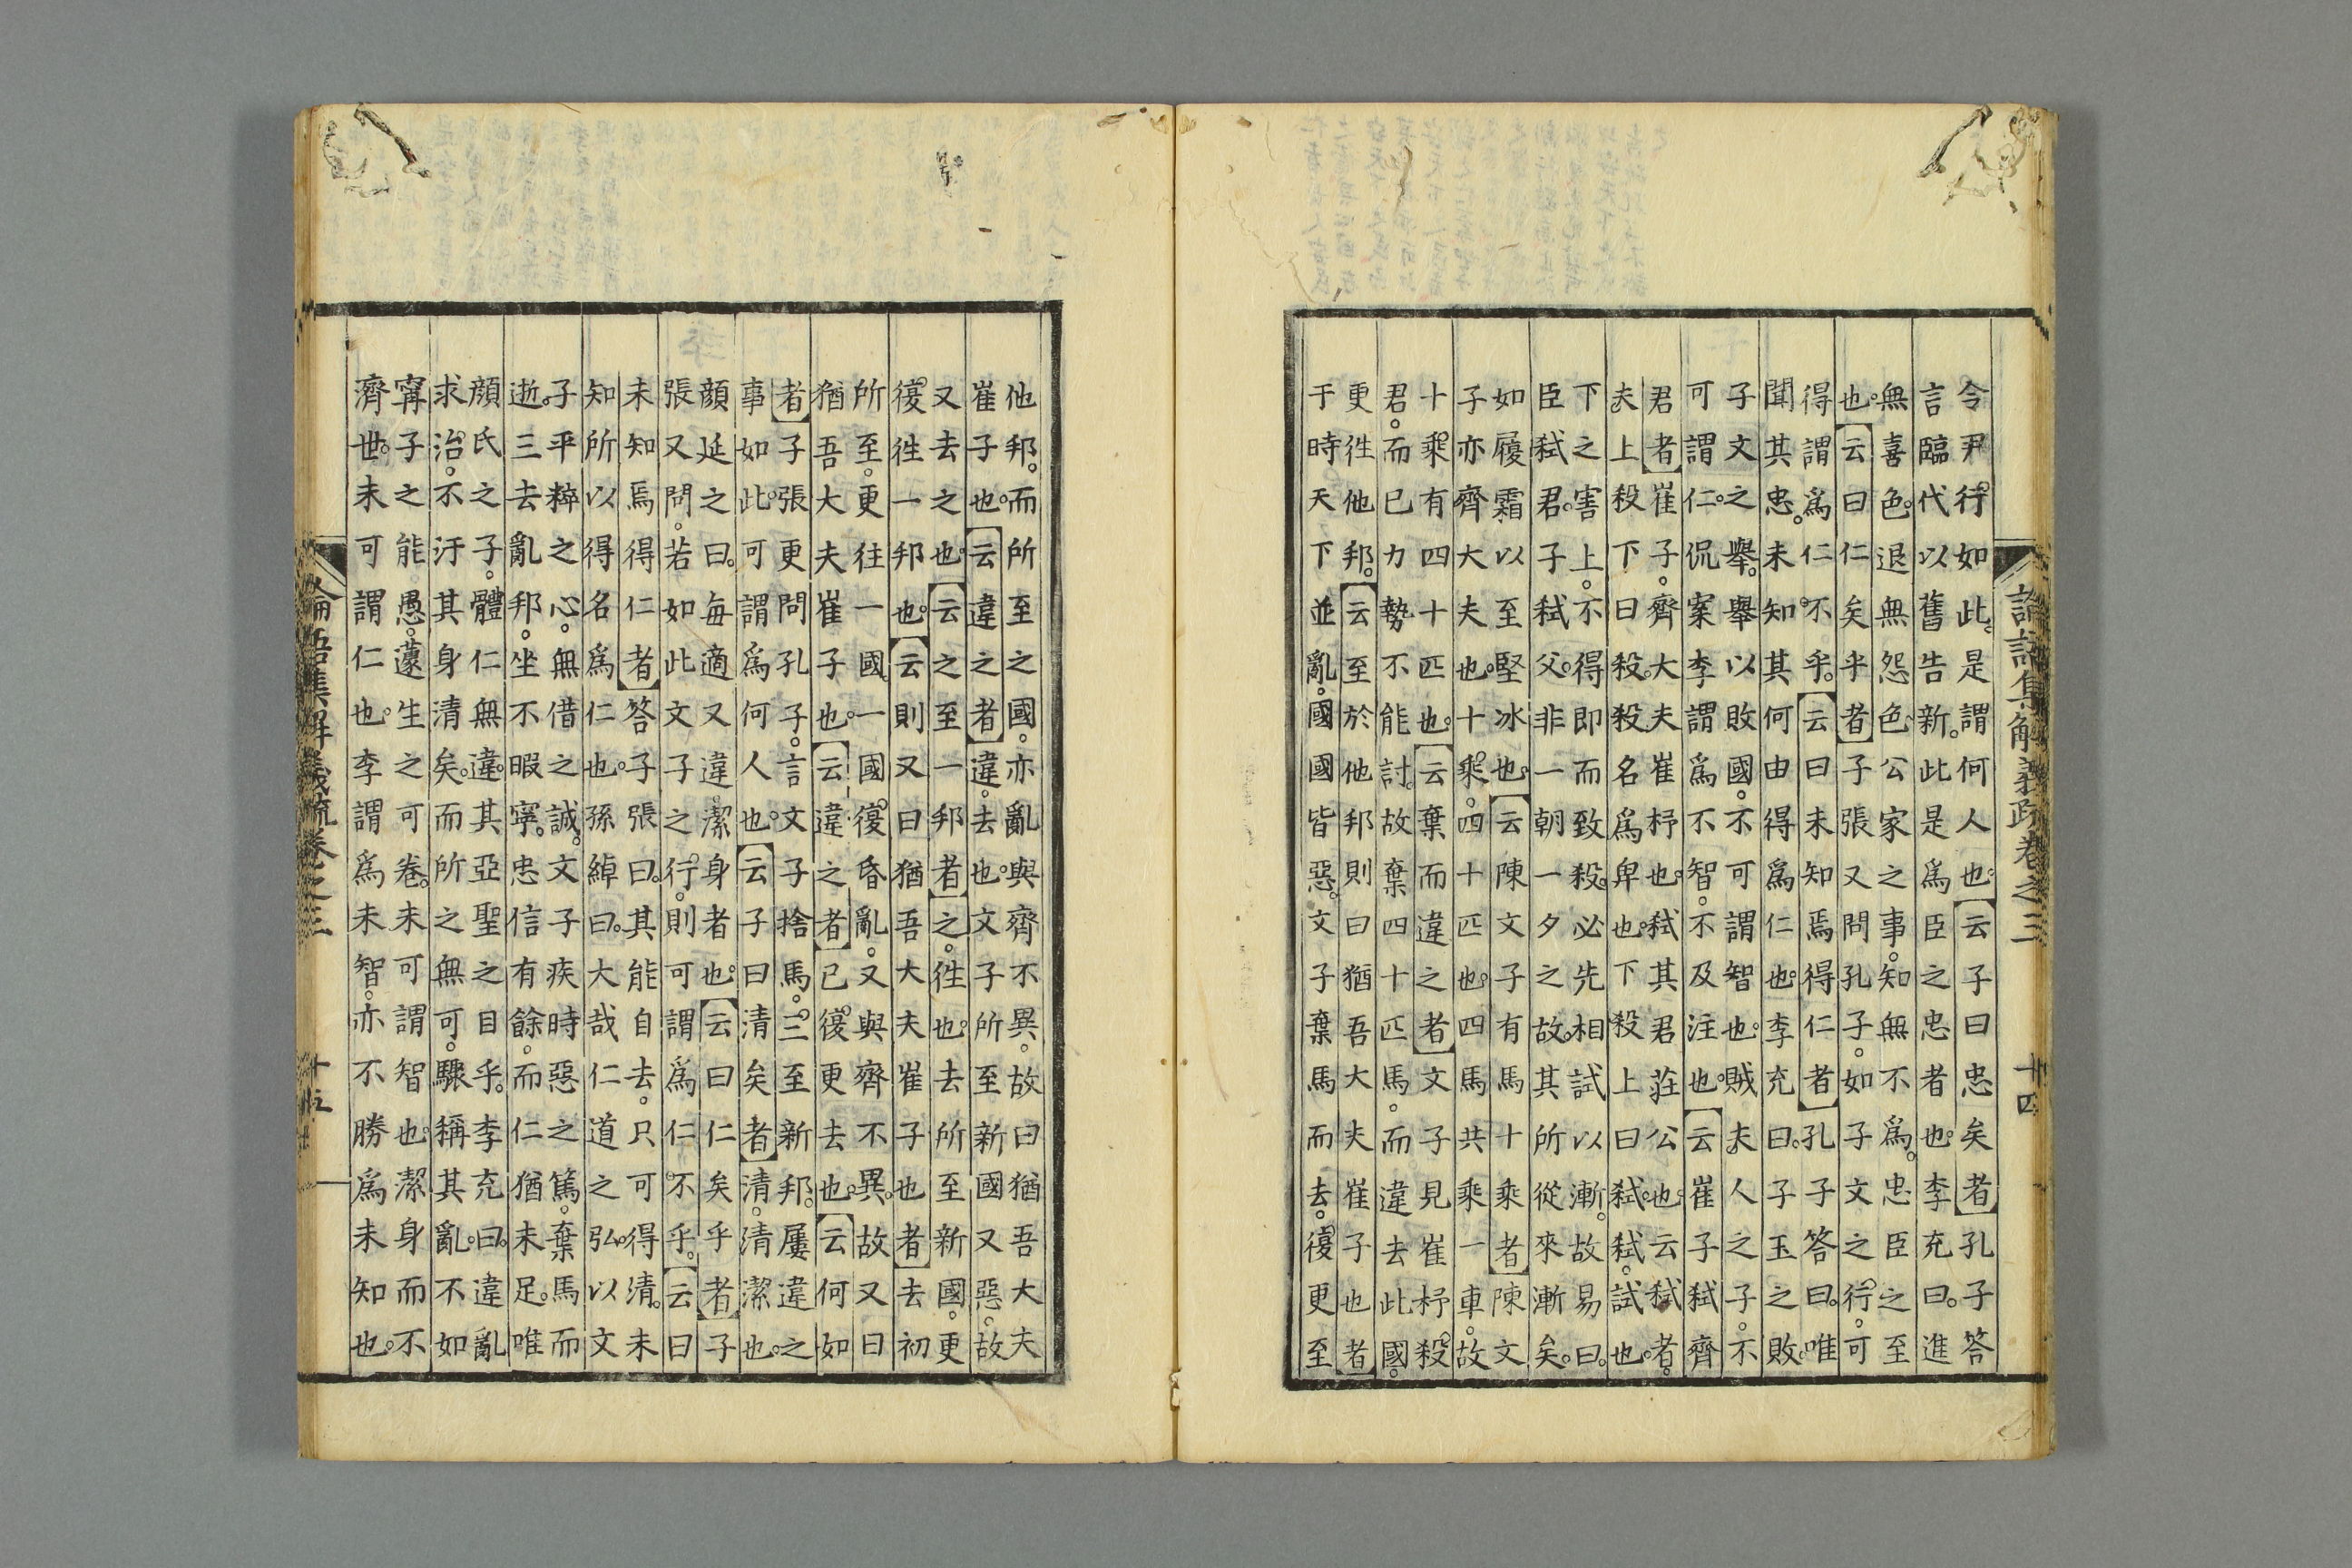 論語集解義疏卷之三　十四
令尹行如此是謂何人也。云子曰忠矣者孔子答
言臨代以舊告新此是爲臣之忠者也。李充曰。進
無喜色。退無怨色。公家之事。知無不爲。忠臣之至
也。云曰仁矣乎者子張又問孔子。如子文之行。可
得謂爲仁不乎。云曰未知焉得仁者孔子答曰。唯
聞其忠。未知其何由得爲仁也。李充曰。子玉之敗。
子文之舉。舉以敗國。不可謂智也。賊夫人之子。不
可謂仁。侃案李謂爲不智。不及注也。云崔子弒齊
君者崔子。齊大夫崔杼也。弒其君莊公也云弒者。
夫上殺下曰殺。殺名爲卑也。下殺上曰弒。弒。試也。
下之害上。不得即而致殺。必先相試以漸。故易曰。
臣弒君。子弒父。非一朝一夕之故。其所從來漸矣。
如履霜以至堅冰也。云陳文子有馬十乘者陳文
子亦齊大夫也。十乘。四十匹也。四馬共乘一車。故
十乘有四十匹也。云棄而違之者文子見崔杼殺
君。而已力勢不能討。故棄四十匹馬。而違去此國。
更徃他邦。云至於他邦則曰猶吾大夫崔子也者
于時天下並亂。國國皆惡。文子棄馬而去。復更至
他邦。而所至之國。亦亂與齊不異。故曰猶吾大夫
崔子也。云違之者違。去也。文子所至新國又惡。故
又去之也。云之至一邦者之。徃也。去所至新國。更
復徃一邦也。云則又曰猶吾大夫崔子也者去初
所至。更往一國。一國復昏亂。又與齊不異。故又曰
猶吾大夫崔子也。云違之者已復更去也。云何如
者子張更問孔子。言文子捨馬。三至新邦。屢違之
事如此。可謂爲何人也。云子曰清矣者清。清潔也。
顏延之曰。每適又違。潔身者也。云曰仁矣乎者子
張又問。若如此文子之行。則可謂爲仁不乎。云曰
未知焉得仁者答子張曰。其能自去。只可得清。未
知所以得名爲仁也。孫綽曰。大哉仁道之弘。以文
子平粹之心。無借之誠。文子疾時惡之篤。棄馬而
逝。三去亂邦。坐不暇寧。忠信有餘。而仁猶未足。唯
顏氏之子。體仁無違。其亞聖之目乎。李充曰。違亂
求治。不汙其身清矣。而所之無可。驟稱其亂。不如
甯子之能愚。蘧生之可卷。未可謂智也。潔身而不
濟世。未可謂仁也。李謂爲未智。亦不勝爲未知也。
論語集解義疏卷之三　十五